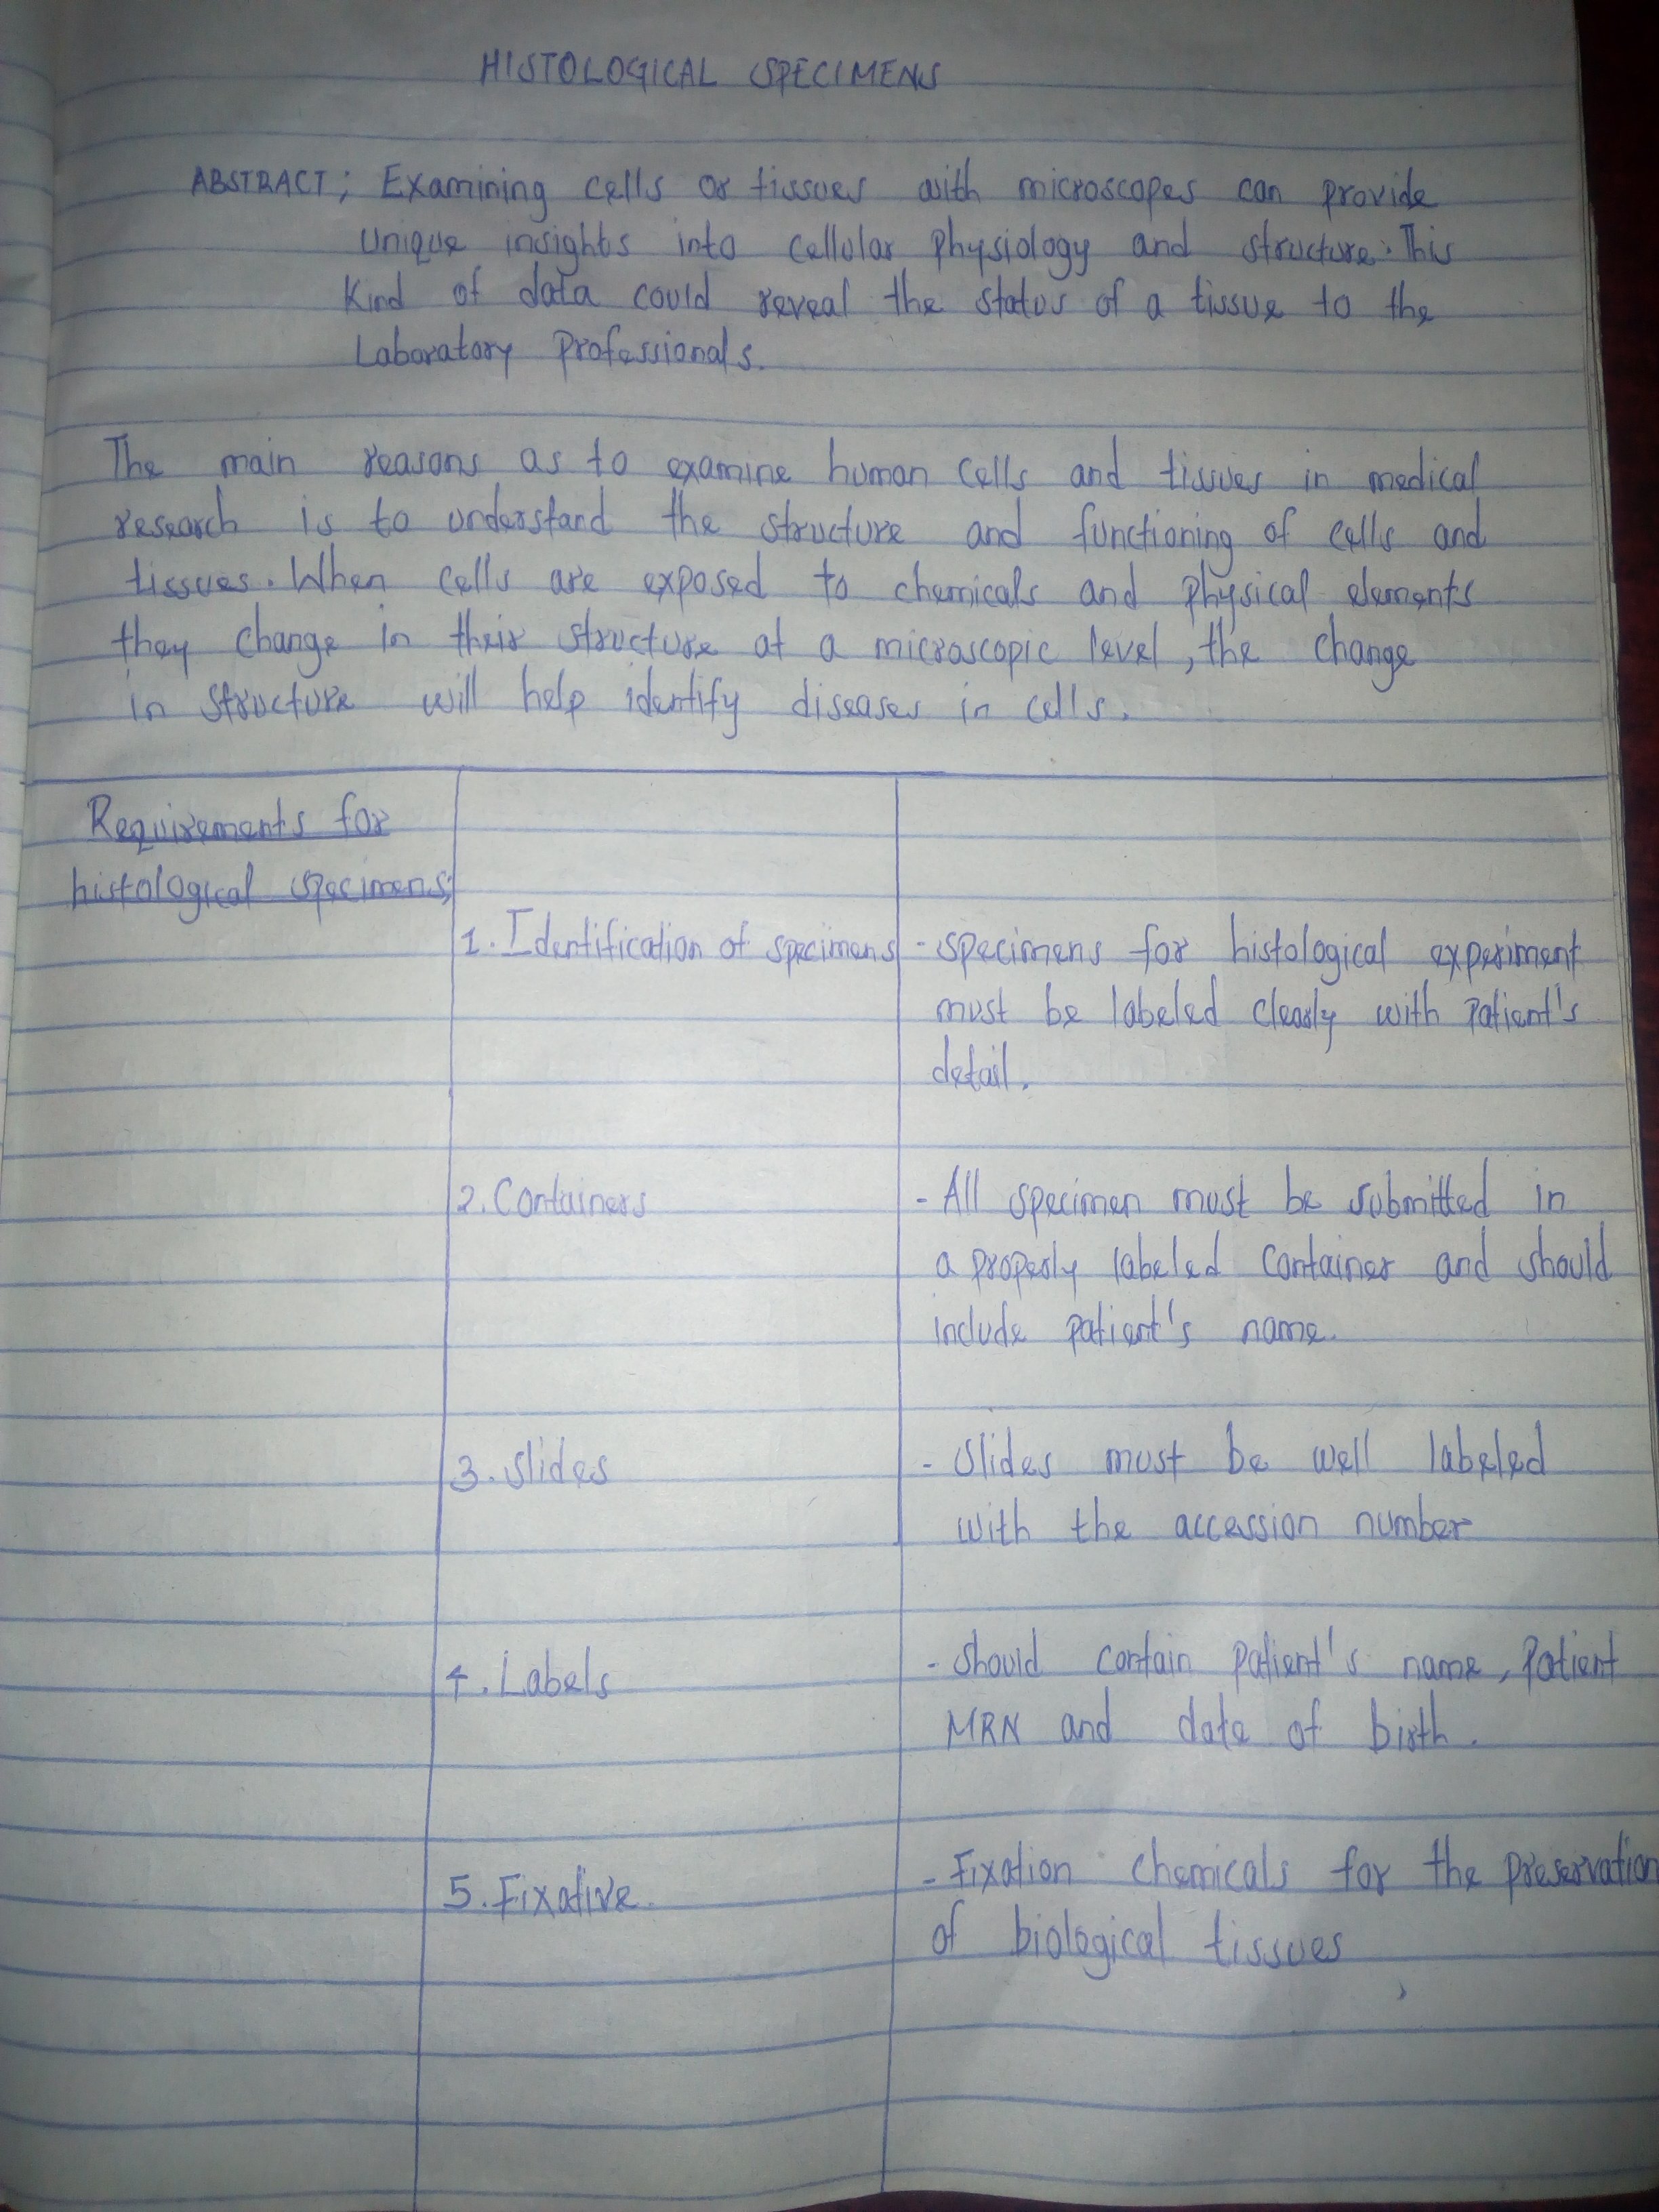 HISTOLOGICAL SPECIMENS
ABSTRACT; Examining cells or tissues with microscopes can provide
unique insights into cellular physiology and structure. This
kind of data could reveal the status of a tissue to the
Laboratory Professionals.
The main reasons as to examine human cells and tissues in medical
research is to understand the structure and functioning of cells and
tissues. When cells are exposed to chemicals and physical elements
they change in their structure at a microscopic level, the change
in structure will help identify diseases in cells.
Requirements for
histological specimens;
1. Identification of specimens
- specimens for histological experiment
must be labeled clearly with patient's
detail.
2. Containers
- All specimen must be submitted in
a properly labeled container and should
include patient's name.
3. Slides
- Slides must be well labeled
with the accession number
4. Labels
- Should contain patient's name, Patient
MRN and date of birth.
5. Fixative.
- Fixation chemicals for the preservation
of biological tissues